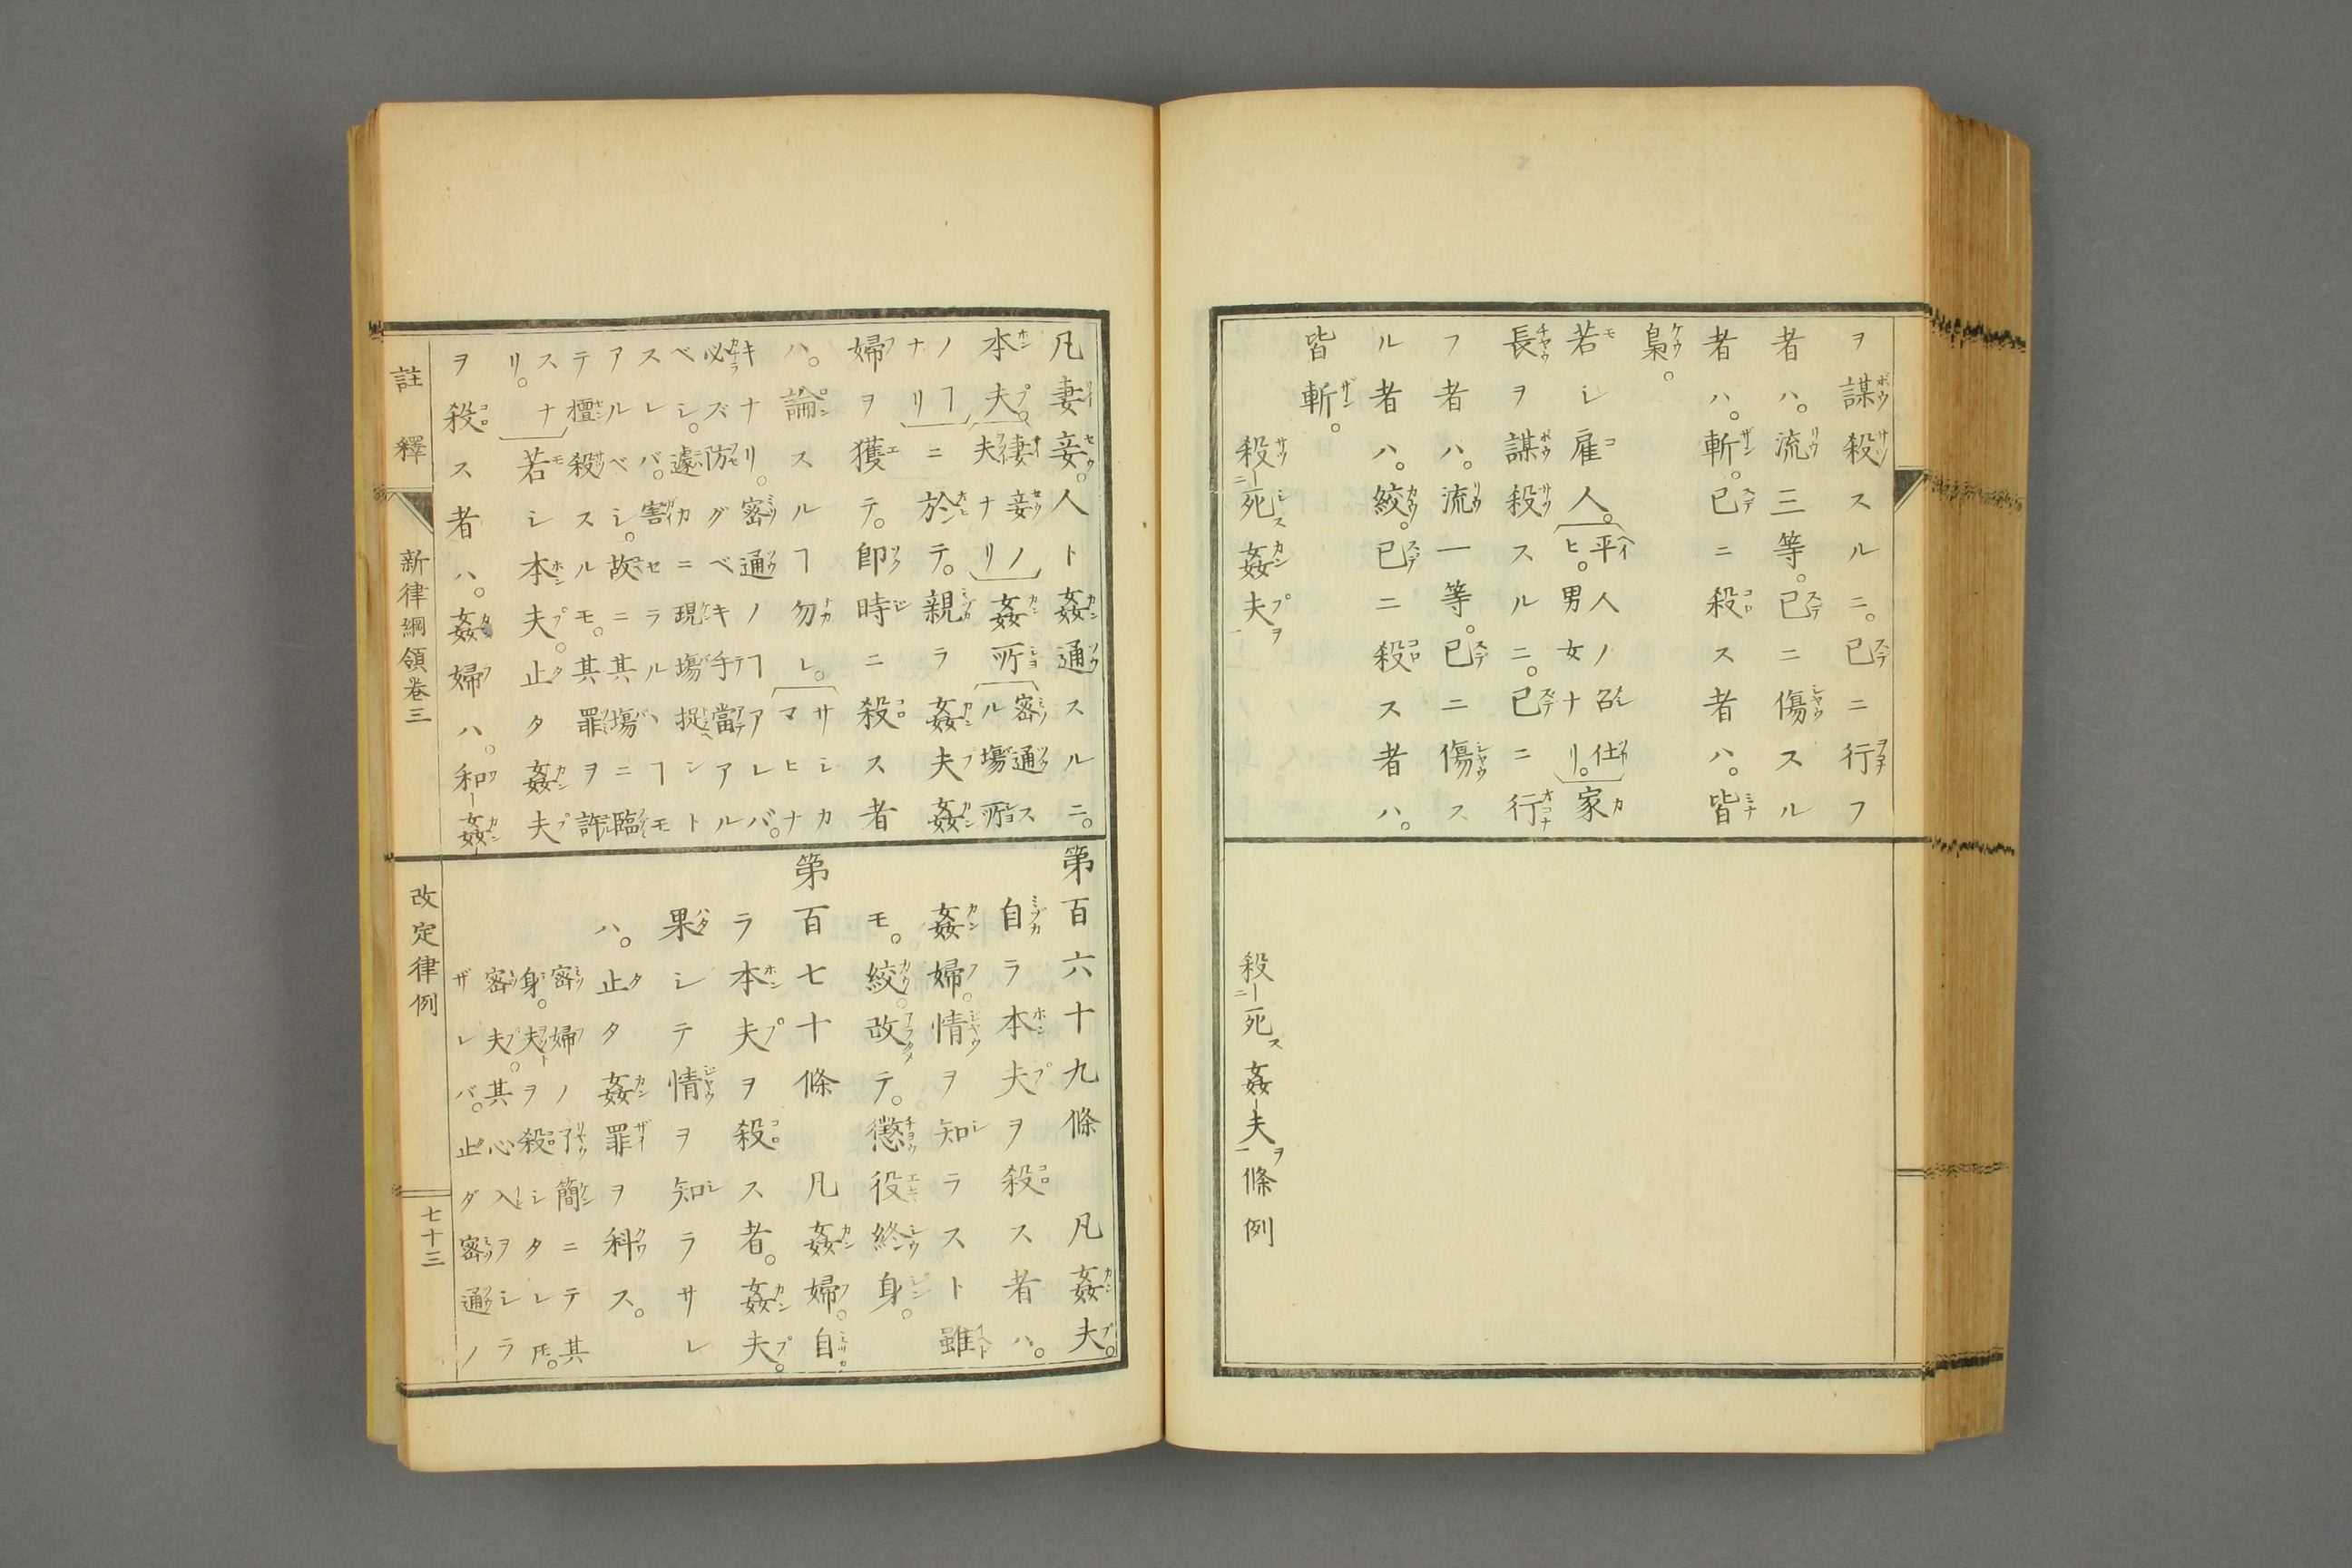 ヲ謀殺スルニ。已ニ行フ
者ハ。流三等。已ニ傷スル
者ハ。斬。已ニ殺ス者ハ。皆
梟。
若シ雇人。平人ノ召仕ヒ。男女ナリ。家
長ヲ謀殺スルニ。已ニ行
フ者ハ。流一等。已ニ傷ス
ル者ハ。絞。已ニ殺ス者ハ。
皆斬。
殺ニ死ス姦夫ヲ一
殺ニ死ス姦夫ヲ一條例
凡妻妾。人ト姦通スルニ。
本夫。妻妾ノ夫ナリ姦所密通スル塲所
ノヿナリニ於テ。親ラ姦夫姦
婦ヲ獲テ。即時ニ殺ス者
ハ。論スルヿ勿レ。サシカマヒナ
キナリ。密通ノヿアレバ。
必ズ防グベキ手當アル
ベシ。遽カニ現塲捉シト
スレバ。害セラルヽヿモ
アルベシ。故ニ其塲ニ臨
テ擅殺スルモ。其罪ヲ許
スナリ。若シ本夫。止タ姦夫
ヲ殺ス者ハ。姦婦ハ。和姦
第百六十九條　凡姦夫。
自ラ本夫ヲ殺ス者ハ。
姦婦。情ヲ知ラスト雖
モ。絞。改テ。懲役終身。
第百七十條　凡姦婦。自
ラ本夫ヲ殺ス者。姦夫。
果シテ情ヲ知ラサレ
ハ。止タ姦罪ヲ科ス。
密婦ノ了簡ニテ其
身。夫ヲ殺シタレ𪜈。
密夫。其心入ヲシラ
ザレバ。止ダ密通ノ
註釋
新律綱領卷三
改定律例
七十三